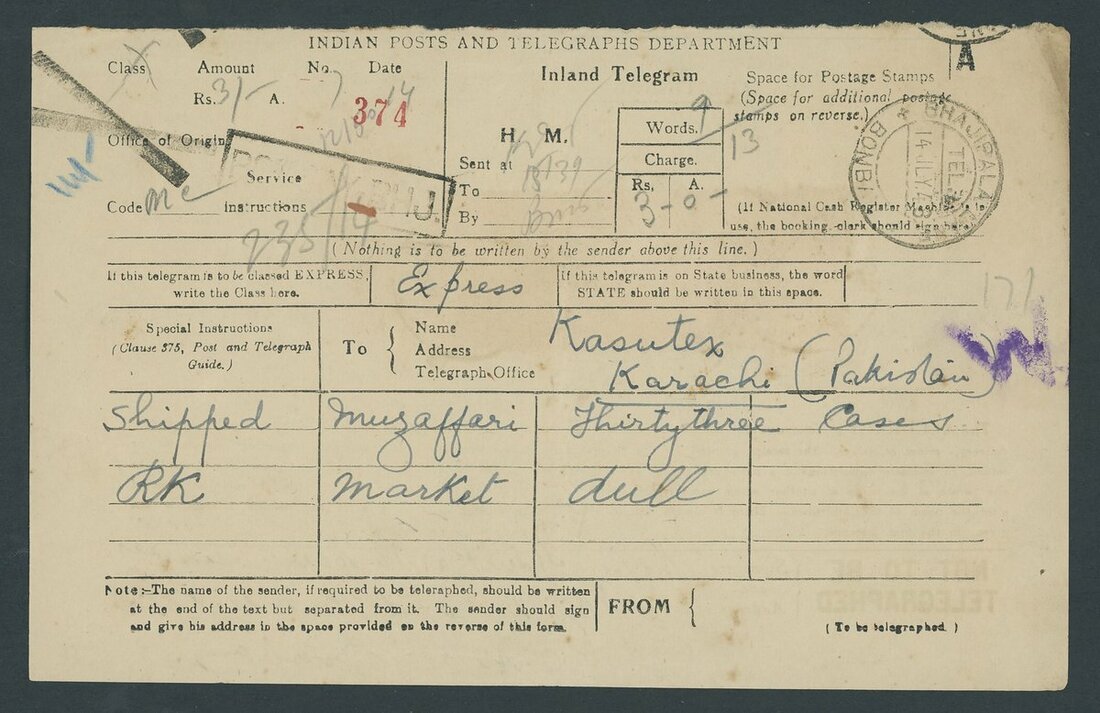 INDIAN POSTS AND TELEGRAPHS DEPARTMENT
A
Class X Amount No. Date
Inland Telegram
Space for Postage Stamps
(Space for additional postage
stamps on reverse.)
Rs. 3/- A.
374
Office of Origin
H. M.
Words.
13
Sent at
Charge.
Service
To
Rs. A.
3-0-
Code instructions
235/14
By
(If National Cash Register Machine is in
use, the booking clerk should sign here)
BHAJIPALA
BOMB
14 JLY
TEL.
(Nothing is to be written by the sender above this line.)
If this telegram is to be classed EXPRESS,
write the Class here.
Express
If this telegram is on State business, the word
STATE should be written in this space.
171
Special Instructions
(Clause 375, Post and Telegraph
Guide.)
To
Name
Address
Telegraph Office
Kasutex
Karachi (Pakistan)
Shipped Muzaffari Thirtythree Cases
RK Market dull
Note:—The name of the sender, if required to be teleraphed, should be written
at the end of the text but separated from it. The sender should sign
and give his address in the space provided on the reverse of this form.
FROM
(To be telegraphed.)